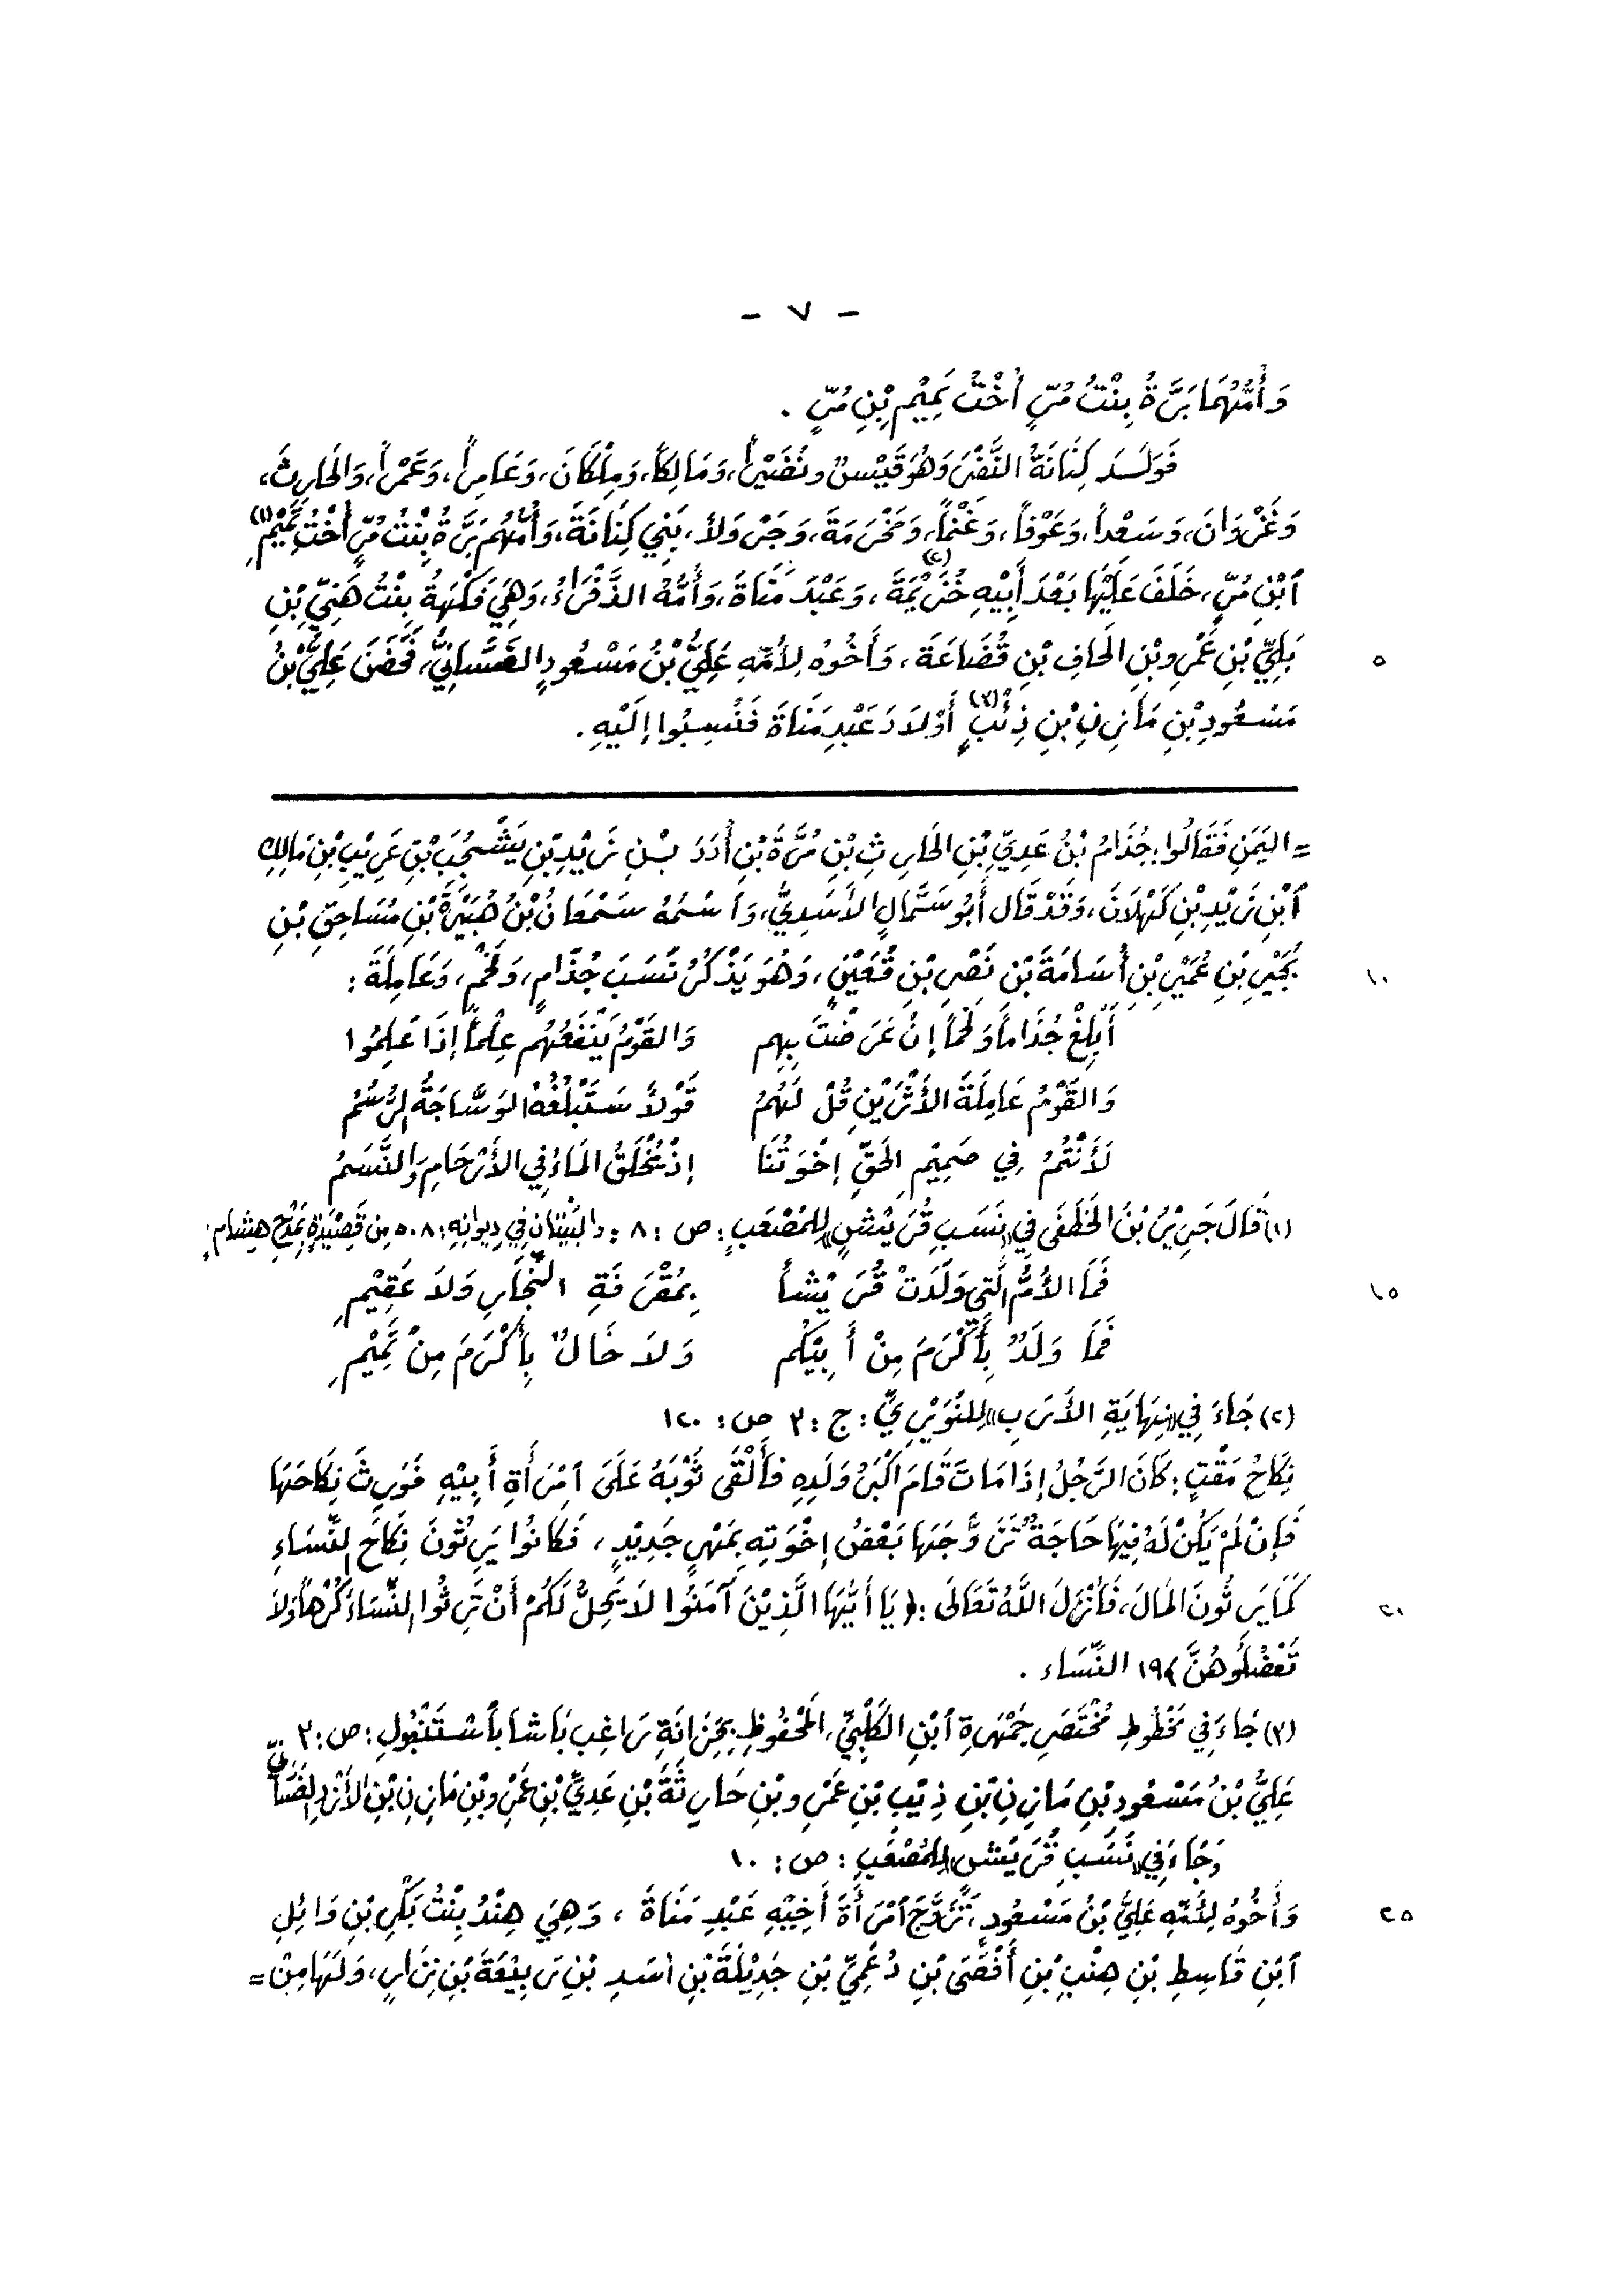 - ٧ -
وَأُمُّهُمَا بَرَّةُ بِنْتُ مُرٍّ أُخْتُ تَمِيْمِ بْنِ مُرٍّ .
فَوَلَدَ كِنَانَةُ النَّضْرَ وَهُوَ قَيْسٌ ونُضَيْراً، وَمَالِكاً، وَمِلْكَانَ، وَعَامِراً، وَعَمْراً، وَالحَارِثَ،
وَغَزْوَانَ، وَسَعْداً، وَعَوْفاً، وَغَنْماً، وَمَخْرَمَةَ، وَجَرْوَلاً، بَنِي كِنَانَةَ، وَأُمُّهُم بَرَّةُ بِنْتُ مُرٍّ أُخْتُ تَمِيْمِ (١)
ٱبْنِ مُرٍّ، خَلَفَ عَلَيْهَا بَعْدَ أَبِيْهِ خُزَيْمَةَ (٢)، وَعَبْدَ مَنَاةَ، وَأُمُّهُ الذَّفْرَاءُ، وَهِيَ فَكْهَةُ بِنْتُ هَنِيِّ بْنِ
بَلِيِّ بْنِ عَمْرِو بْنِ الحَافِ بْنِ قُضَاعَةَ، وَأَخُوهُ لِأُمِّهِ عَلِيُّ بْنُ مَسْعُودٍ الغَسَّانِيُّ، فَحَضَنَ عَلِيُّ بْنُ
٥
مَسْعُودِ بْنِ مَازِنِ بْنِ ذِئْبٍ (٣) أَوْلاَدَ عَبْدِ مَنَاةَ فَنُسِبُوا إِلَيْهِ.
= اليَمَنِ فَقَالُوا: جُذَامُ بْنُ عَدِيِّ بْنِ الحَارِثِ بْنِ مُرَّةَ بْنِ أُدَدَ بْنِ زَيْدِ بْنِ يَشْجُبَ بْنِ عَرِيْبِ بْنِ مَالِكِ
ٱبْنِ زَيْدِ بْنِ كَهْلاَنَ، وَقَدْ قَال أَبُو سَمَّالٍ الأَسَدِيُّ، وَٱسْمُهُ سَمْعَانُ بْنُ هُبَيْرَةَ بْنِ مُسَاحِقِ بْنِ
بُجَيْرِ بْنِ عُمَيْرِ بْنِ أُسَامَةَ بْنِ نَصْرِ بْنِ قُعَيْنٍ، وَهُوَ يَذْكُرُ نَسَبَ جُذَامٍ، وَلَخْمٍ، وَعَامِلَةَ :
١٠
أَبْلِغْ جُذَاماً وَلَخْماً إِنْ عَرَضْتَ بِهِم وَالقَوْمُ يَنْفَعُهُم عِلْماً إِذَا عَلِمُوا
وَالقَوْمُ عَامِلَةَ الأَثْرَيْنِ قُلْ لَهُمُ قَوْلاً سَتَبْلُغُهُ الوَسَّاجَةُ الرُّسُمُ
لَأَنْتُمُ فِي صَمِيْمِ الحَقِّ إِخْوَتُنَا إِذْ يُخْلَقُ المَاءُ فِي الأَرْحَامِ وَالنَّسَمُ
(١) قَالَ جَرِيْرُ بْنُ الخَطَفَى فِي «نَسَبِ قُرَيْشٍ» لِلمُصْعَبِ: ص : ٨ : والبَيْتَانِ فِي دِيوَانِهِ: ٥٠٨ مِن قَصِيْدَةٍ يَمْدَحُ هِشَام:
فَمَا الأُمُّ الَّتِي وَلَدَتْ قُرَيْشاً بِمُقْرَفَةِ النِّجَارِ وَلاَ عَقِيْمِ
١٥
فَمَا وَلَدٌ بِأَكْرَمَ مِنْ أَبِيْكُم وَلاَ خَالٌ بِأَكْرَمَ مِنْ تَمِيْمِ
(٢) جَاءَ فِي «نِهَايَةِ الأَرَبِ» لِلنُّوَيْرِيِّ : ج : ٣ ص: ١٢٠
نِكَاحُ مَقْتٍ: كَانَ الرَّجُلُ إِذَا مَاتَ قَامَ أَكْبَرُ وَلَدِهِ فَأَلْقَى ثَوْبَهُ عَلَىَ ٱمْرَأَةِ أَبِيْهِ فَوَرِثَ نِكَاحَهَا
فَإِنْ لَمْ يَكُنْ لَهُ فِيْهَا حَاجَةٌ تَزَوَّجَهَا بَعْضُ إِخْوَتِهِ بِمَهْرٍ جَدِيْدٍ، فَكَانُوا يَرِثُونَ نِكَاحَ النِّسَاءِ
كَمَا يَرِثُونَ المَالَ، فَأَنْزَلَ اللَّهُ تَعَالَى :﴿ يَا أَيُّهَا الَّذِيْنَ آمَنُوا لاَ يَحِلُّ لَكُمْ أَنْ تَرِثُوا النِّسَاءَ كُرْهاً وَلاَ
٢٠
تَعْضُلُوهُنَّ ﴾ ١٩ النِّسَاء .
(٣) جَاءَ فِي مَخْطُوطِ مُخْتَصَرِ جَمْهَرَةِ ٱبْنِ الكَلْبِيِّ، المَحْفُوظِ بِخِزَانَةِ رَاغِب بَاشا بِٱسْتَنْبُولِ: ص: ٣
عَلِيُّ بْنُ مَسْعُودِ بْنِ مَازِنِ بْنِ ذِيْبِ بْنِ عَمْرِو بْنِ حَارِثَةَ بْنِ عَدِيِّ بْنِ عَمْرِو بْنِ مَازِنِ بْنِ الأَزْدِ الغَسَّانِيُّ
وَجَاءَ فِي «نَسَبِ قُرَيْشٍ» لِلمُصْعَبِ : ص : ١٠
وَأَخُوهُ لِأُمِّهِ عَلِيُّ بْنُ مَسْعُودٍ، تَزَوَّجَ ٱمْرَأَةَ أَخِيْهِ عَبْدِ مَنَاةَ ، وَهِيَ هِنْدُ بِنْتُ بَكْرِ بْنِ وَائِلِ
٢٥
ٱبْنِ قَاسِطِ بْنِ هِنْبِ بْنِ أَفْصَى بْنِ دُعْمِيِّ بْنِ جَدِيْلَةَ بْنِ أَسَدِ بْنِ رَبِيْعَةَ بْنِ نِزَارٍ، وَلَهَا مِنْ =